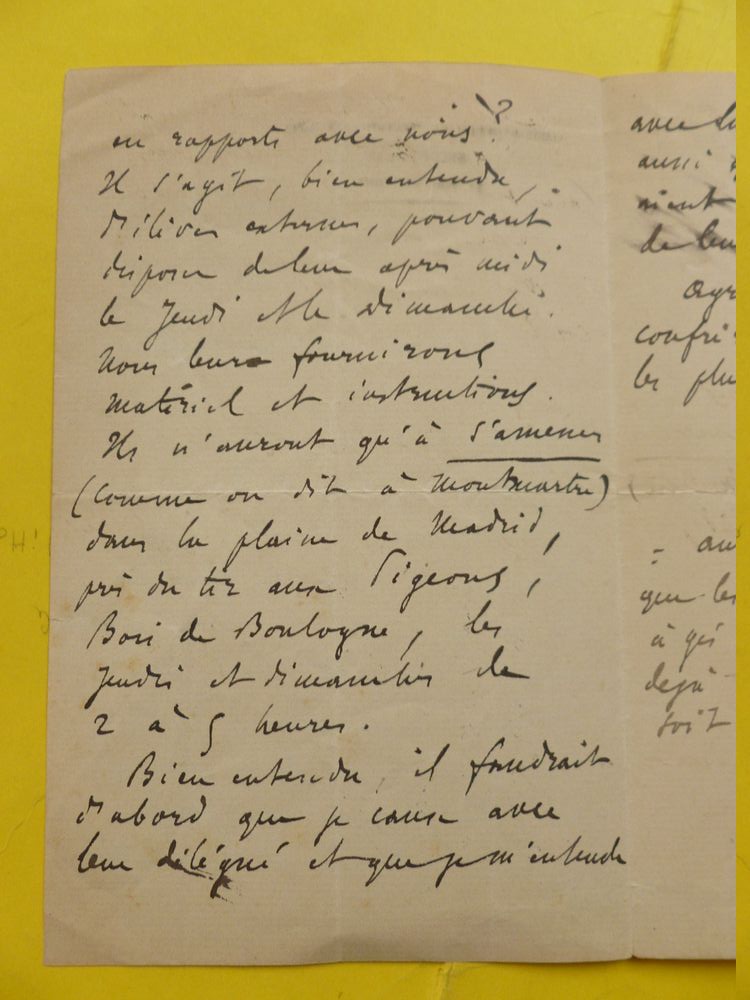 en rapports avec nous ?
Il s'agit, bien entendu,
d'élèves externes, pouvant
disposer de leur après midi
le Jeudi et le Dimanche.
Nous leurs fournirons
matériel et instructions.
Ils n'auront qu'à s'amener
(comme on dit à Montmartre)
dans la plaine de Madrid,
près du tir aux Pigeons,
Bois de Boulogne, les
Jeudis et dimanches de
2 à 5 heures.
Bien entendu, il faudrait
d'abord que je cause avec
leur délégué et que je m'entende
avec
aussi
aient
de leur
confrè
les plu
au
que les
à qui
dejà
soit